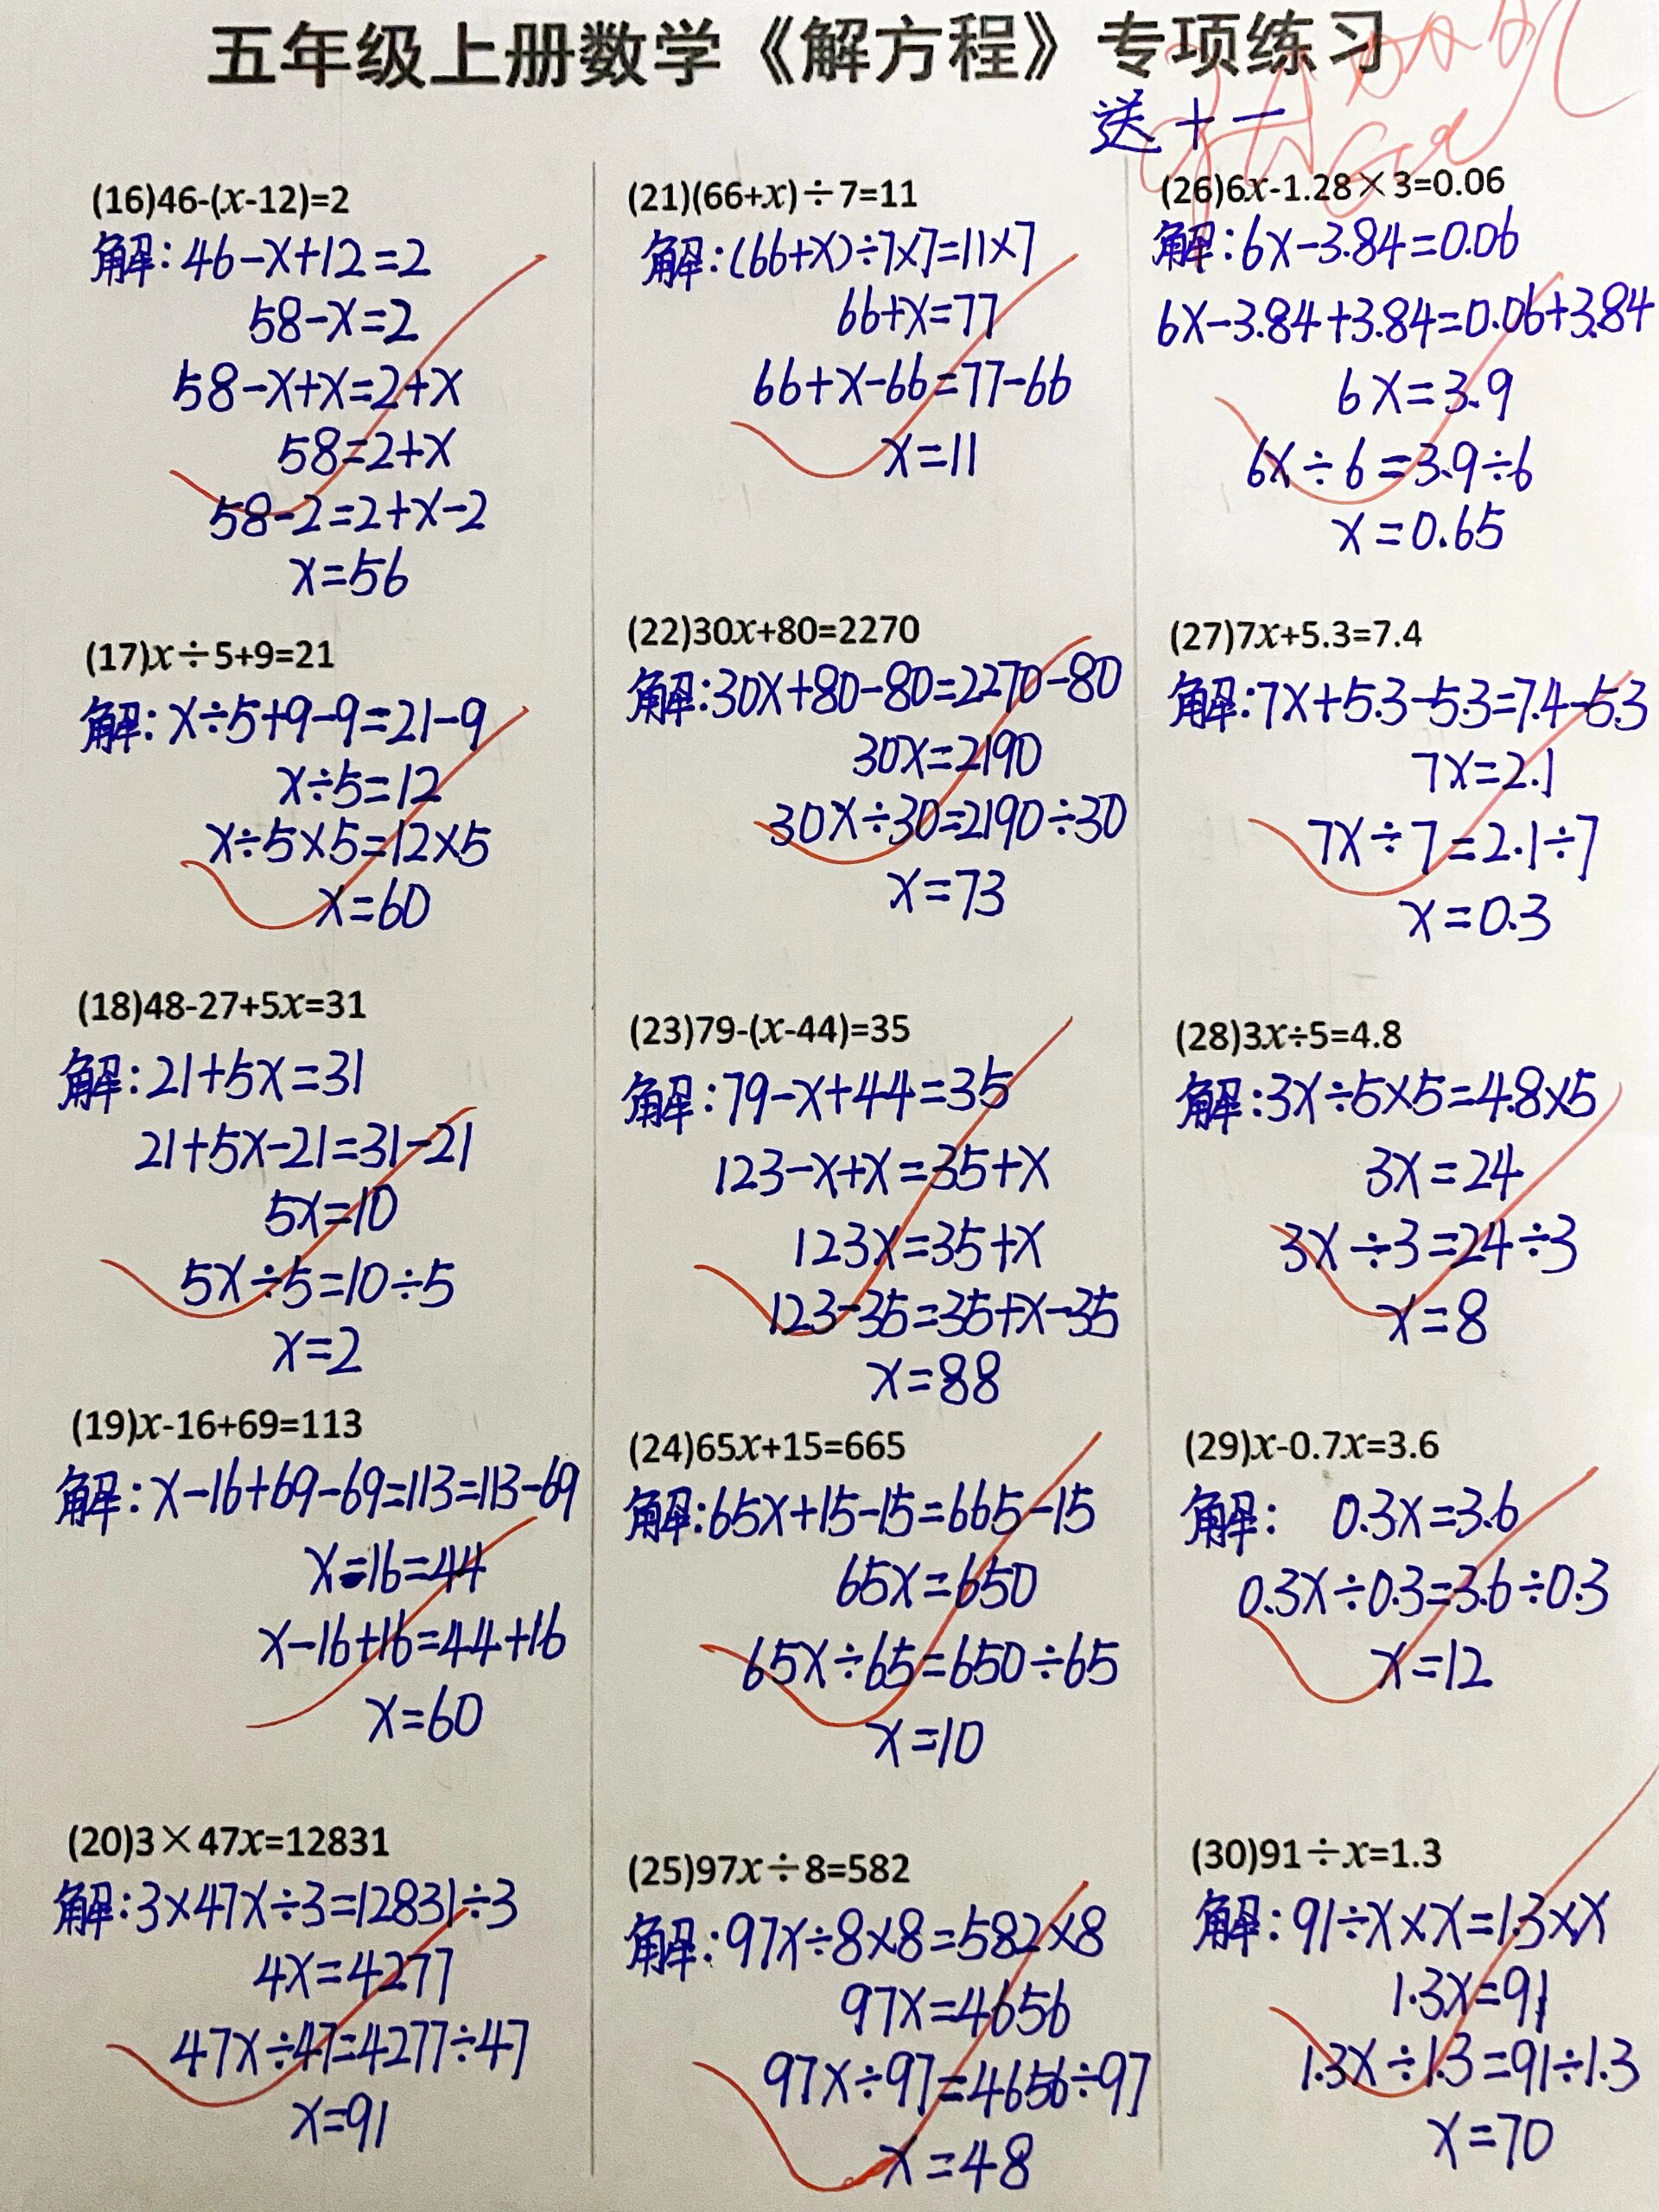 五年级上册数学《解方程》专项练习
送十一
(16)46-(x-12)=2
解:46-x+12=2
58-x=2
58-x+x=2+x
58=2+x
58-2=2+x-2
x=56
(17)x÷5+9=21
解:x÷5+9-9=21-9
x÷5=12
x÷5×5=12×5
x=60
(18)48-27+5x=31
解:21+5x=31
21+5x-21=31-21
5x=10
5x÷5=10÷5
x=2
(19)x-16+69=113
解:x-16+69-69=113=113-69
x-16=44
x-16+16=44+16
x=60
(20)3×47x=12831
解:3×47x÷3=12831÷3
4x=4277
47x÷47=4277÷47
x=91
(21)(66+x)÷7=11
解:(66+x)÷7×7=11×7
66+x=77
66+x-66=77-66
x=11
(22)30x+80=2270
解:30x+80-80=2270-80
30x=2190
30x÷30=2190÷30
x=73
(23)79-(x-44)=35
解:79-x+44=35
123-x+x=35+x
123x=35+x
123-35=35+x-35
x=88
(24)65x+15=665
解:65x+15-15=665-15
65x=650
65x÷65=650÷65
x=10
(25)97x÷8=582
解:97x÷8×8=582×8
97x=4656
97x÷97=4656÷97
x=48
(26)6x-1.28×3=0.06
解:6x-3.84=0.06
6x-3.84+3.84=0.06+3.84
6x=3.9
6x÷6=3.9÷6
x=0.65
(27)7x+5.3=7.4
解:7x+5.3-5.3=7.4-5.3
7x=2.1
7x÷7=2.1÷7
x=0.3
(28)3x÷5=4.8
解:3x÷5×5=4.8×5
3x=24
3x÷3=24÷3
x=8
(29)x-0.7x=3.6
解: 0.3x=3.6
0.3x÷0.3=3.6÷0.3
x=12
(30)91÷x=1.3
解:91÷x×x=1.3×x
1.3x=91
1.3x÷1.3=91÷1.3
x=70